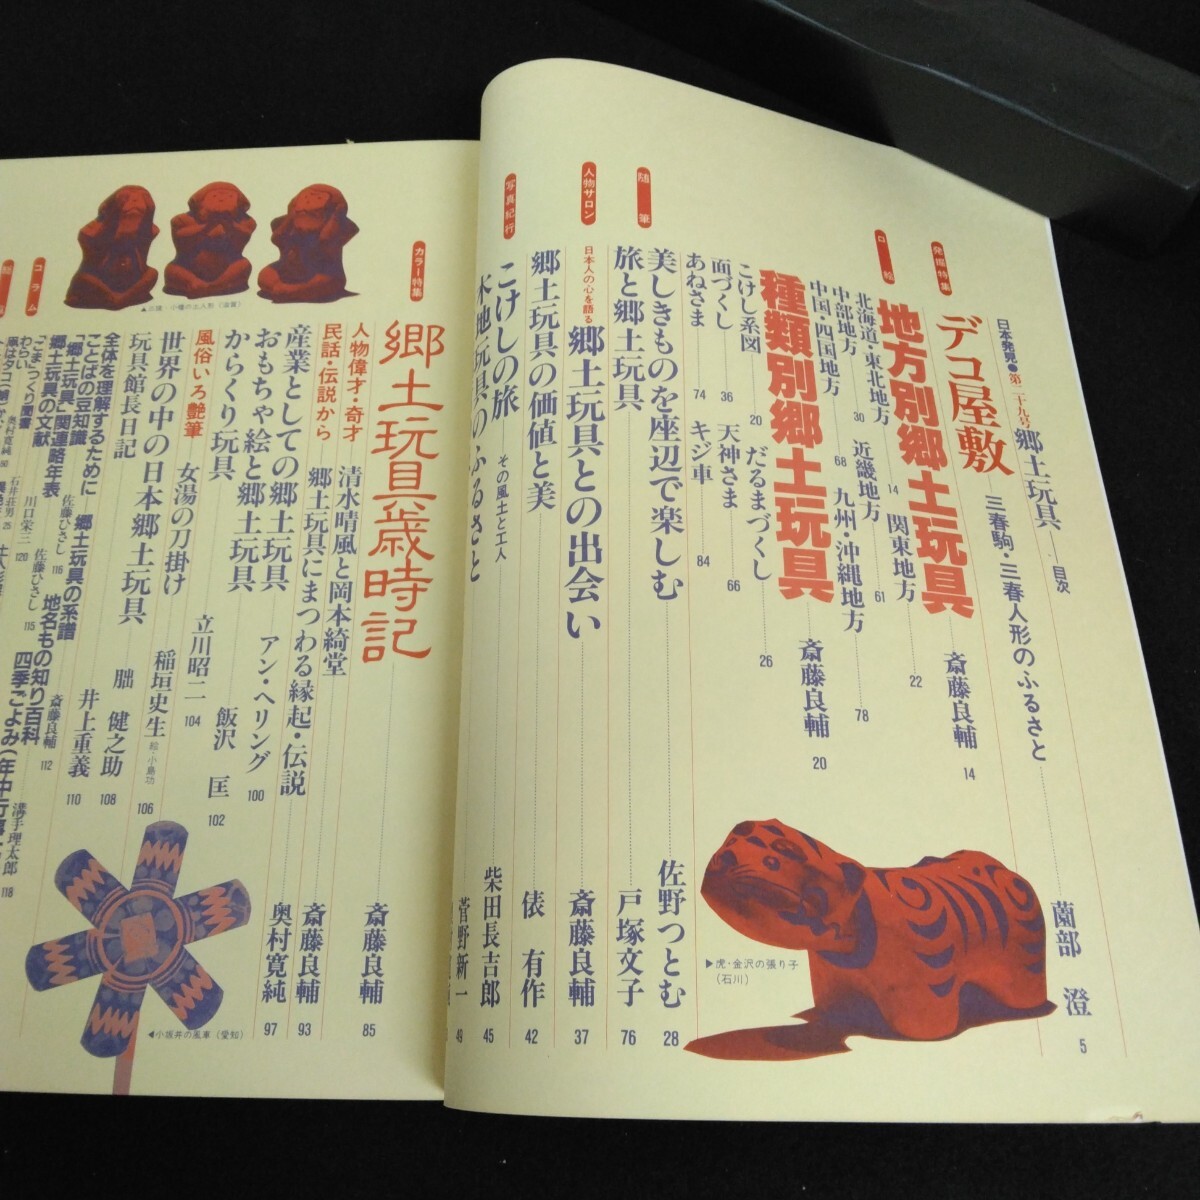 日本発見●第二十九号 郷土玩具 目次
発掘特集
デコ屋敷 三春駒・三春人形のふるさと 薗部 澄 5
口絵
地方別郷土玩具 斎藤良輔 14
北海道・東北地方 14 関東地方 22
中部地方 30 近畿地方 61
中国・四国地方 68 九州・沖縄地方 78
種類別郷土玩具 斎藤良輔 20
こけし系図 20 だるまづくし 26
面づくし 36 天神さま 66
あねさま 74 キジ車 84
随筆
美しきものを座辺で楽しむ 佐野つとむ 28
旅と郷土玩具 戸塚文子 76
人物サロン
日本人の心を語る 郷土玩具との出会い 斎藤良輔 37
郷土玩具の価値と美 俵 有作 42
写真紀行
こけしの旅 その風土と工人 柴田長吉郎 45
木地玩具のふるさと 菅野新一 49
▶虎・金沢の張り子
(石川)
カラー特集
郷土玩具歳時記 斎藤良輔 85
人物偉才・奇才 清水晴風と岡本綺堂
民話・伝説から 郷土玩具にまつわる縁起・伝説 斎藤良輔 93
産業としての郷土玩具 奥村寛純 97
おもちゃ絵と郷土玩具 アン・ヘリング 100
からくり玩具 飯沢 匡 102
風俗いろ艶筆 女湯の刀掛け 立川昭二 104
世界の中の日本郷土玩具 稲垣史生 絵・小島功 106
玩具館長日記 朏 健之助 108
井上重義 110
全体を理解するために 郷土玩具の系譜 斎藤良輔 112
ことばの豆知識 佐藤ひさし 116 地名もの知り百科
「郷土玩具」関連略年表 佐藤ひさし 115
郷土玩具の文献 川口栄三 120 四季ごよみ(年中行事
溝手理太郎 118
コラム
わらい
「こま」つくり聞書 石井荘男 25
奥村寛純 60
▲小幡の土人形(滋賀)
◀小坂井の風車(愛知)